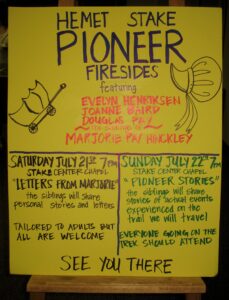 HEMET STAKE
PIONEER
FIRESIDES
featuring
EVELYN HENRIKSEN
JOANNE BAIRD
DOUGLAS PAY
MARJORIE PAY HINCKLEY
SATURDAY JULY 21ST 7PM
STAKE CENTER CHAPEL
"LETTERS FROM MARJORIE"
the siblings will share
personal stories and letters
TAILORED TO ADULTS BUT
ALL ARE WELCOME
SUNDAY JULY 22ND 7PM
STAKE CENTER CHAPEL
"PIONEER STORIES"
the siblings will share
stories of actual events
experienced on the
trail we will travel
EVERYONE GOING ON THE
TREK SHOULD ATTEND
SEE YOU THERE